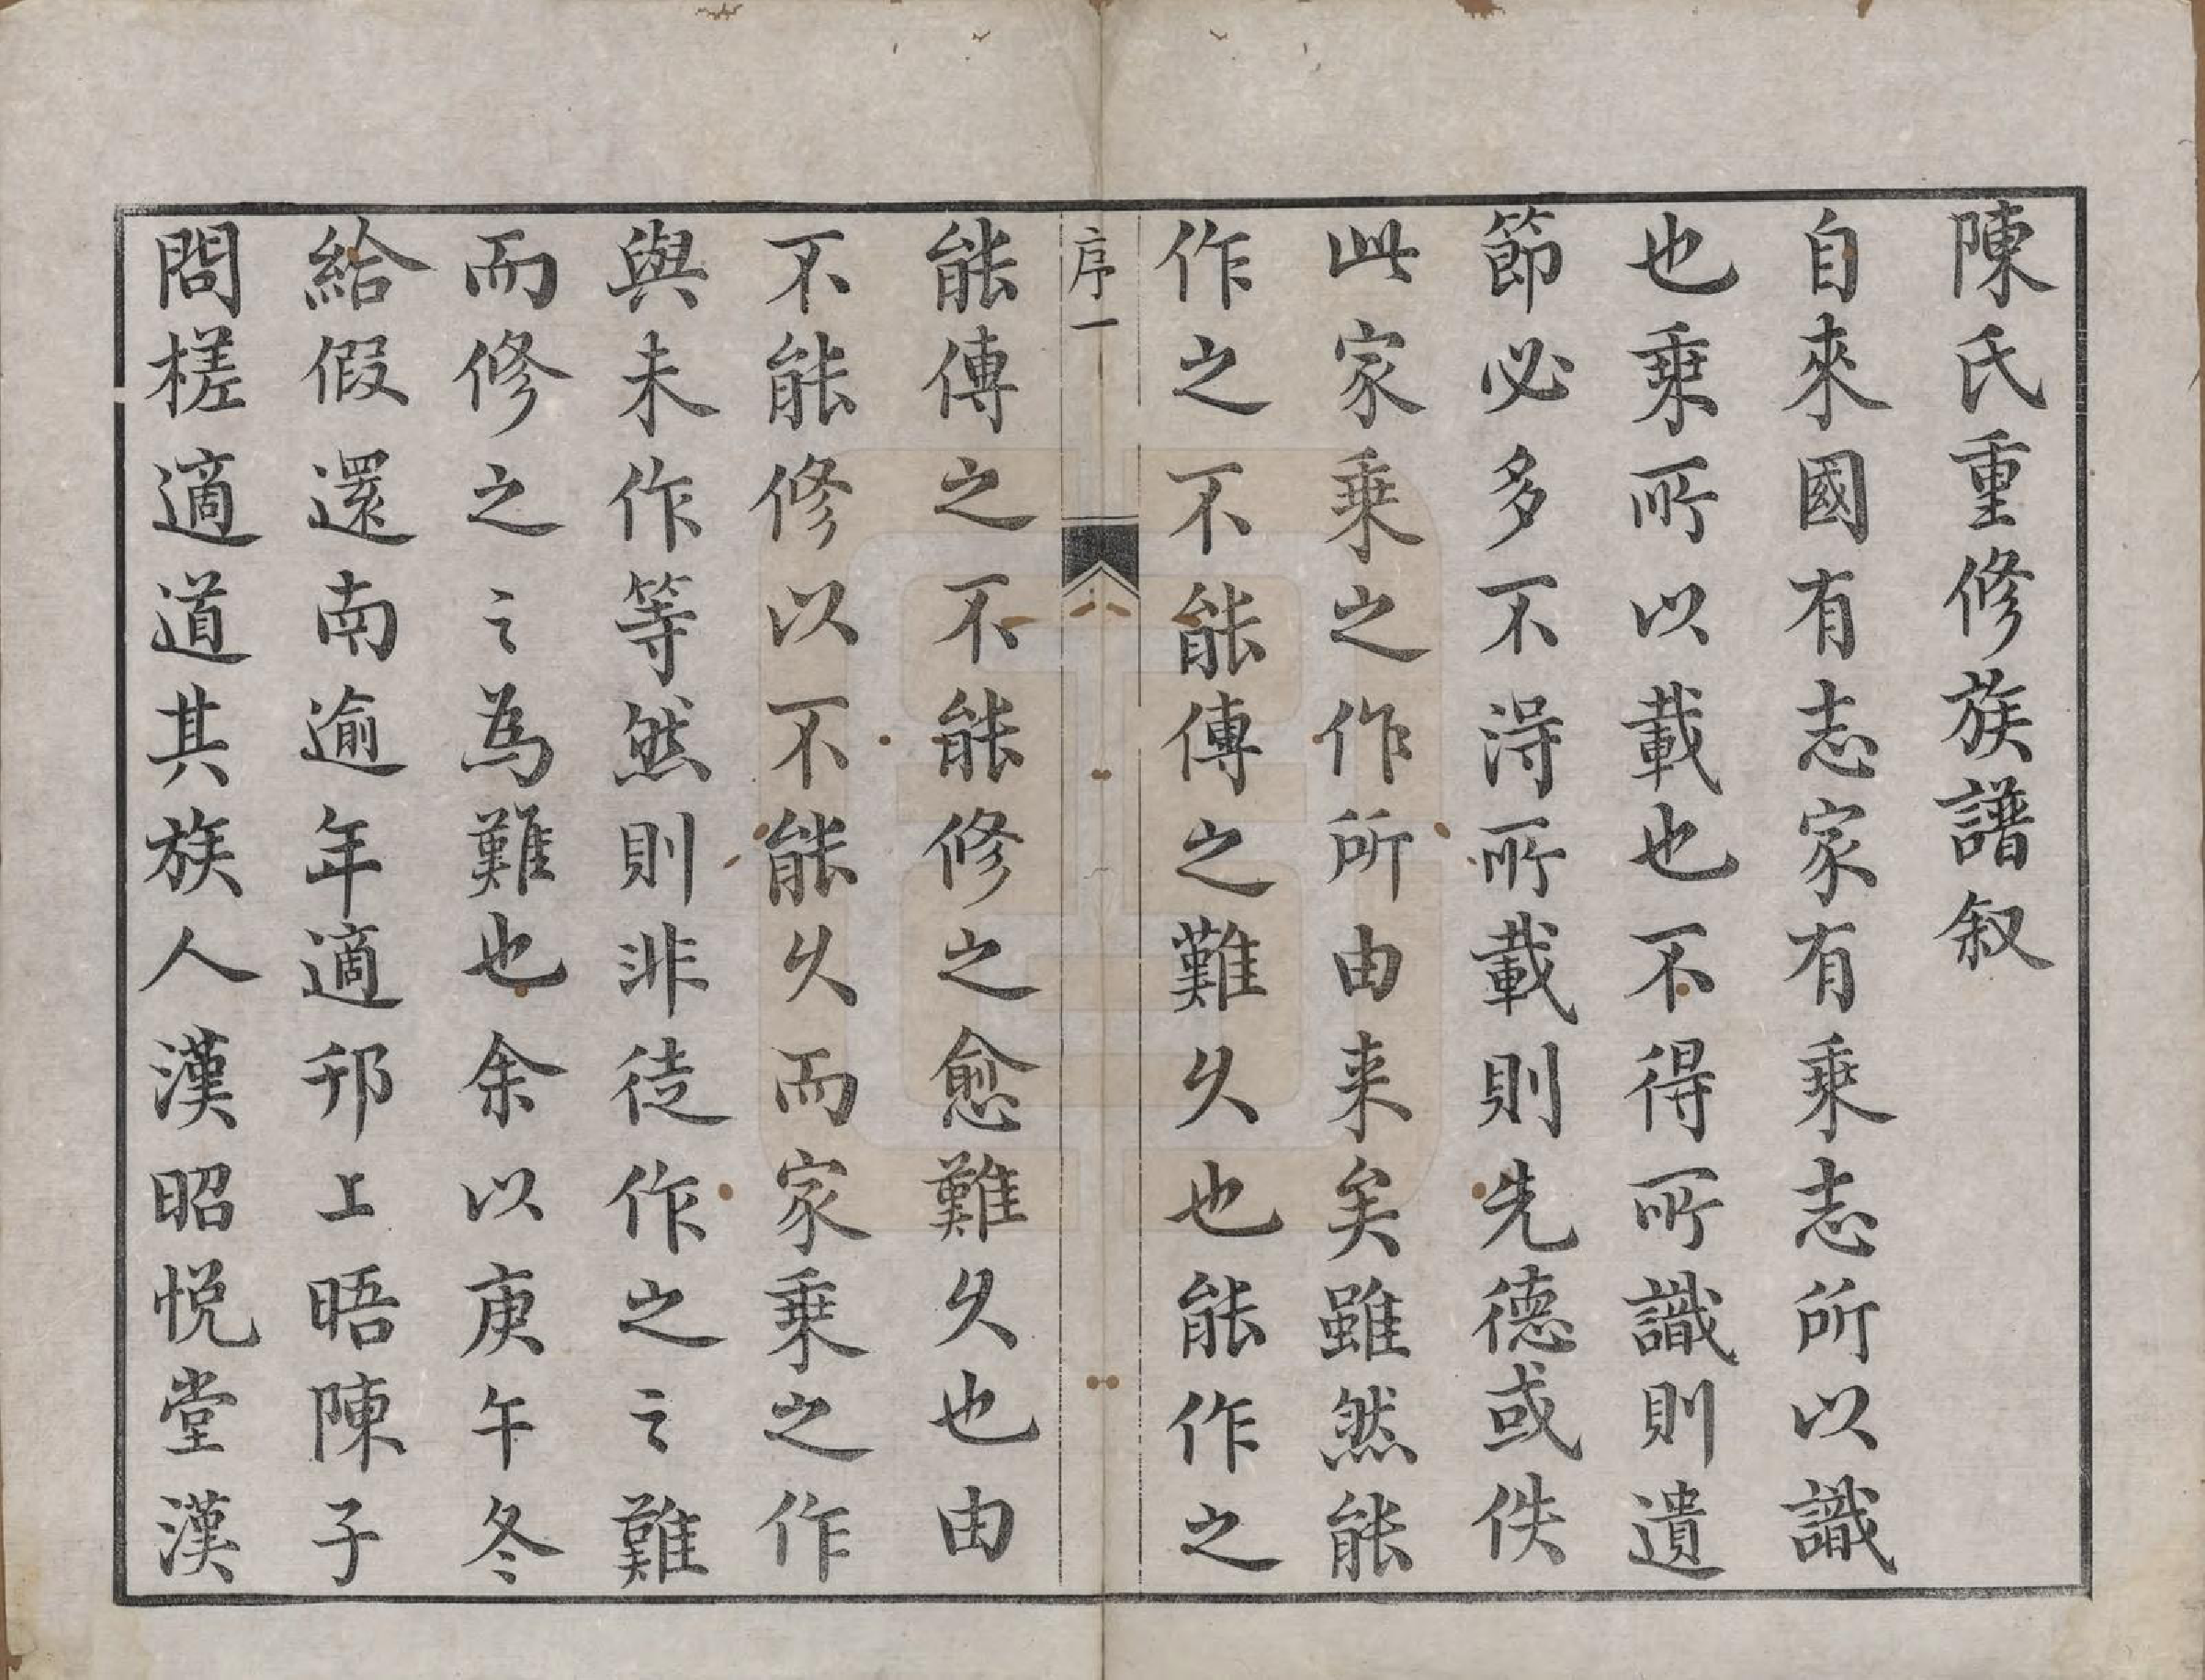 陳氏重修族譜叙
自來國有志家有乘志所以識
也乘所以載也不得所識則遺
節必多不淂所載則先德或佚
此家乘之作所由来矣雖然能
作之不能傳之難久也能作之
序一
能傳之不能修之愈難久也由
不能修以不能久而家乘之作
與未作等然則非徒作之之難
而修之之為難也余以庚午冬
給假還南逾年適邗上晤陳子
問槎適道其族人漢昭悦堂漢